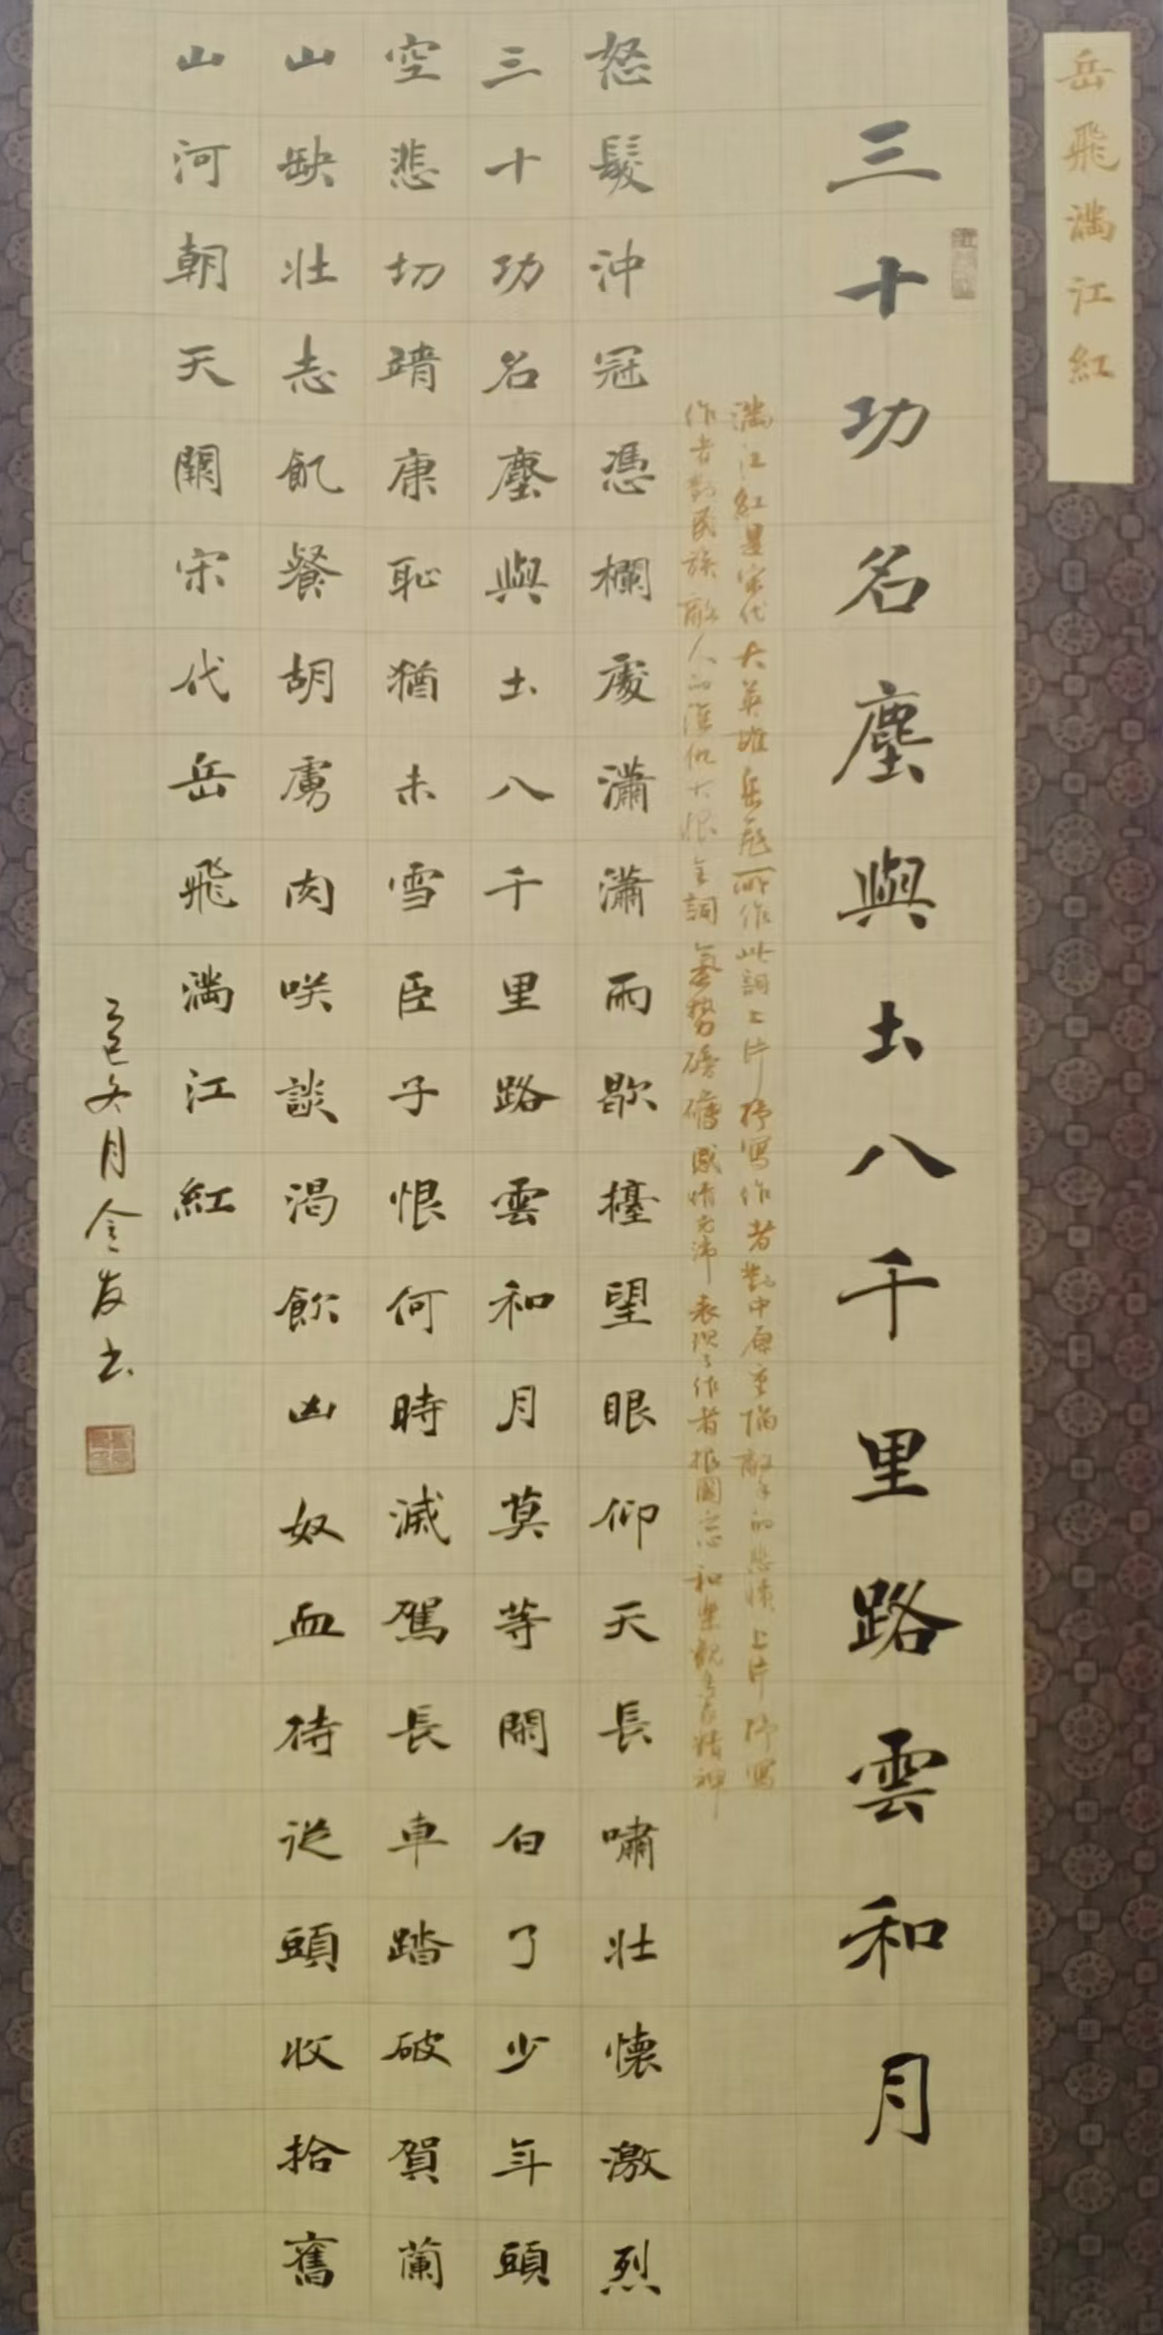 岳飛滿江紅
三十功名塵與土八千里路雲和月
滿江紅是宋代大英雄岳飛所作此詞上片抒寫作者對中原重陷敵手的悲憤上片抒寫
作者對民族敵人的深仇大恨全詞氣勢磅礴感情充沛表現了作者報國之志和樂觀主義精神
怒髮沖冠憑欄處瀟瀟雨歇擡望眼仰天長嘯壯懷激烈
三十功名塵與土八千里路雲和月莫等閑白了少年頭
空悲切靖康恥猶未雪臣子恨何時滅駕長車踏破賀蘭
山缺壯志飢餐胡虜肉咲談渴飲凶奴血待從頭收拾舊
山河朝天闕宋代岳飛滿江紅
乙巳冬月金友书